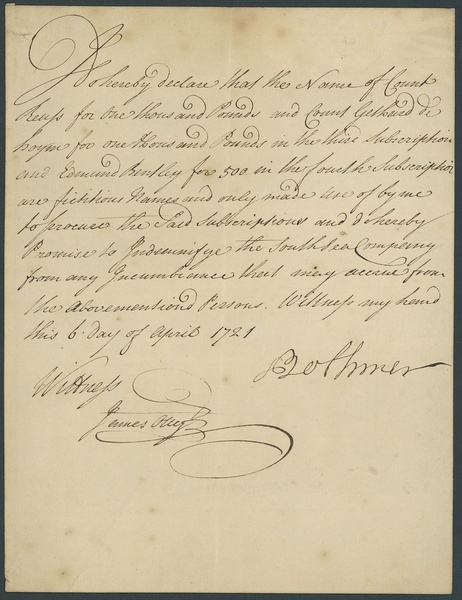 Do hereby declare that the Name of Count
Reuss for one thousand Pounds and Count Gebhard de
hoym for one thousand Pounds in the third Subscription
and Edmund Bentley for 500 in the fourth Subscription
are fictitious Names and only made use of by me
to procure the Said Subscriptions and do hereby
Promise to Indemnifye the South Sea Company
from any Incumbrance that may accrue from
the abovementiond Persons. Wittness my hand
this 6 Day of April 1721
Bothmer
Wittness
James